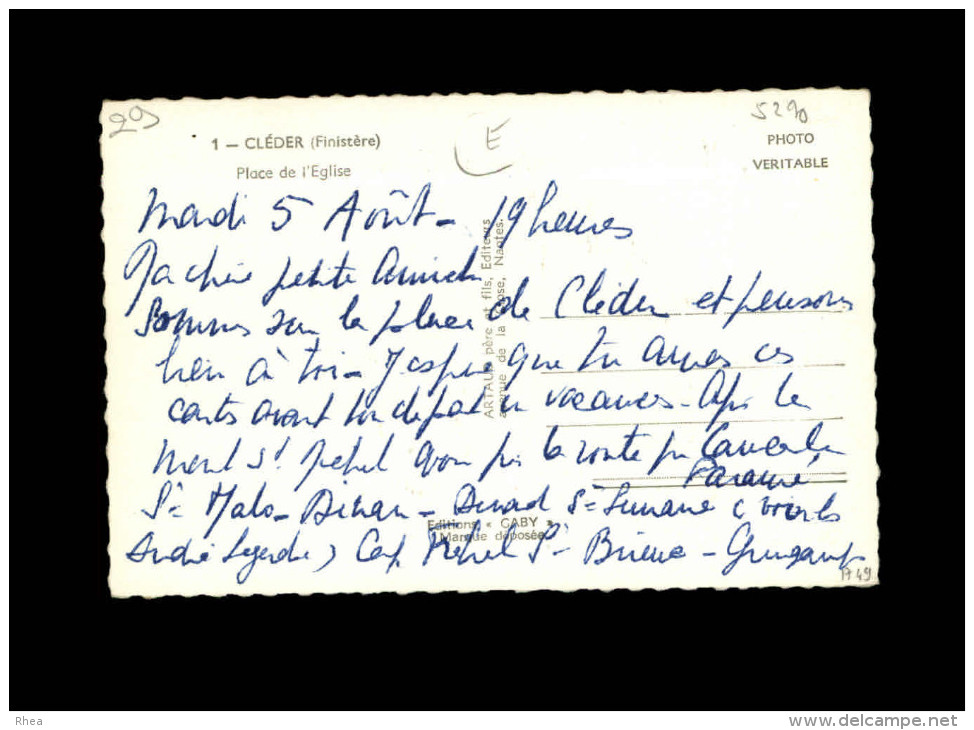 29
5290
E
1 — CLÉDER (Finistère)
Place de l'Eglise
PHOTO
VERITABLE
Mardi 5 Août - 19 heures
Ma chère petite
Sommes sur la place de Cléder et pensons
bien à toi - J'espère que tu auras ces
cartes avant ton départ en vacances - Après le
Mont St Michel avons pris la route par Cancale
Paramé
St Malo - Dinan - Dinard St Lunaire
André Cap Fréhel St Brieuc - Guingamp
ARTAUD père et fils, Editeurs
avenue de la Nantes.
Editions « GABY »
Marque déposée
A 49
Rhea
www.delcampe.net